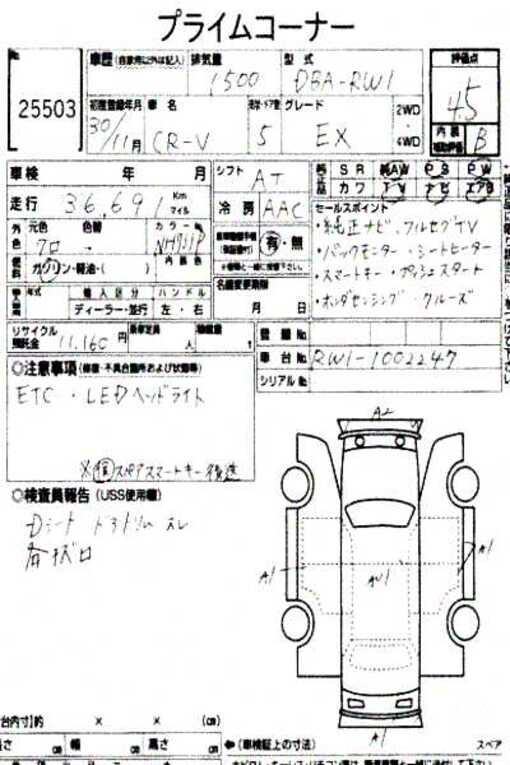 プライムコーナー
No
25503
車歴 (自家用以外は記入)
排気量
1500
型式
DBA-RW1
評価点
4.5
初度登録年月
30/11月
車名
CR-V
5
グレード
EX
2WD
・
4WD
内装
補助評価
B
車検 年 月
シフト
AT
SR 純AW PS PW
カワ TV ナビ エアB
走行 36,691 Km
マイル
冷房 AAC
セールスポイント
・純正ナビ、フルセグTV
・バックモニター・シートヒーター
・スマートキー・プッシュスタート
・ホンダセンシング・クルーズ
外色
元色 色替
クロ
カラーNo.
NH731P
内装色
有・無
燃料
ガソリン・軽油・( )
名義変更期限
月 日
年式
輸入区分
ハンドル
ディーラー・並行
左・右
リサイクル
預託金
11,160 円
乗車定員
人
積載量
t
登録No.
車台No.
RW1-1002247
シリアルNo.
◎注意事項 (修復・不具合箇所および状態等)
ETC・LEDヘッドライト
※ スペアスマートキー後送
◎検査員報告 (USS使用欄)
Dシート ドアトリム スレ
各キズ
A2
A1
A1
AU1
A1
台内寸)約 × × (cm)
長さ cm 幅 cm 高さ cm
←(車検証上の寸法)
スペア